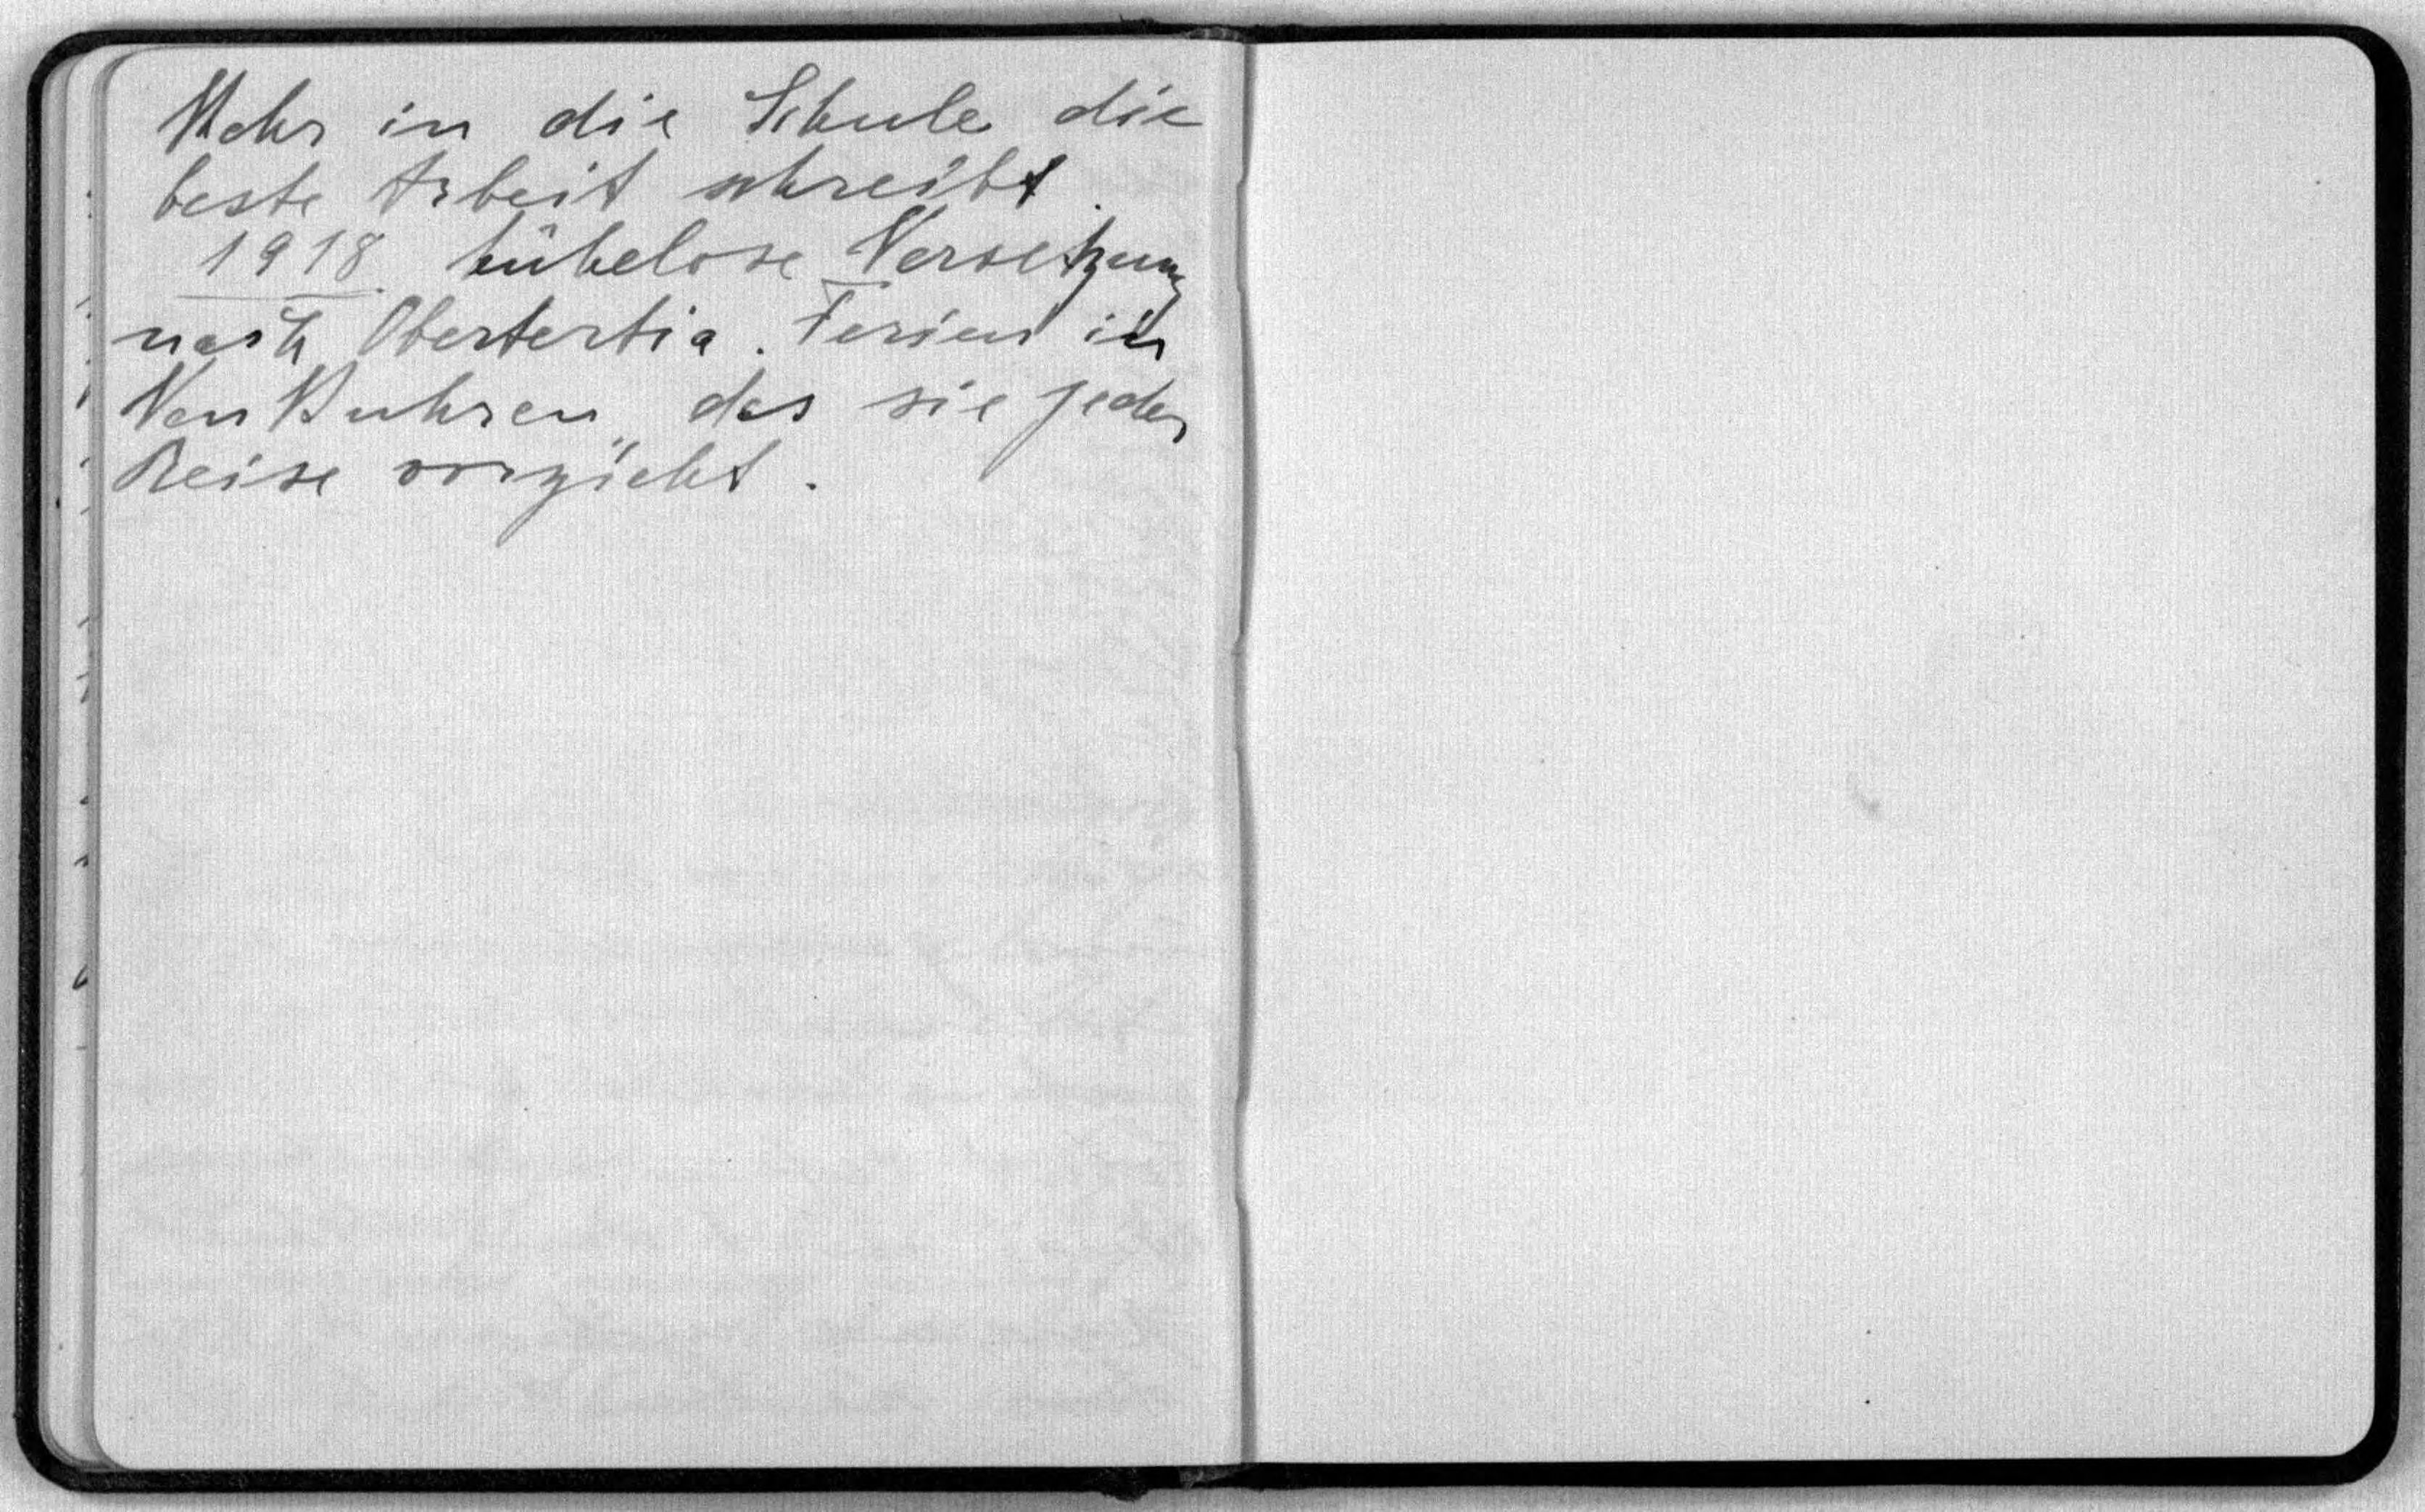 Mehr in die Schule die
beste Arbeit schreibt.
1918. mühelose Versetzung
nach Obertertia. Ferien in
Neu Kuhren, das sie jeder
Reise vorzieht.